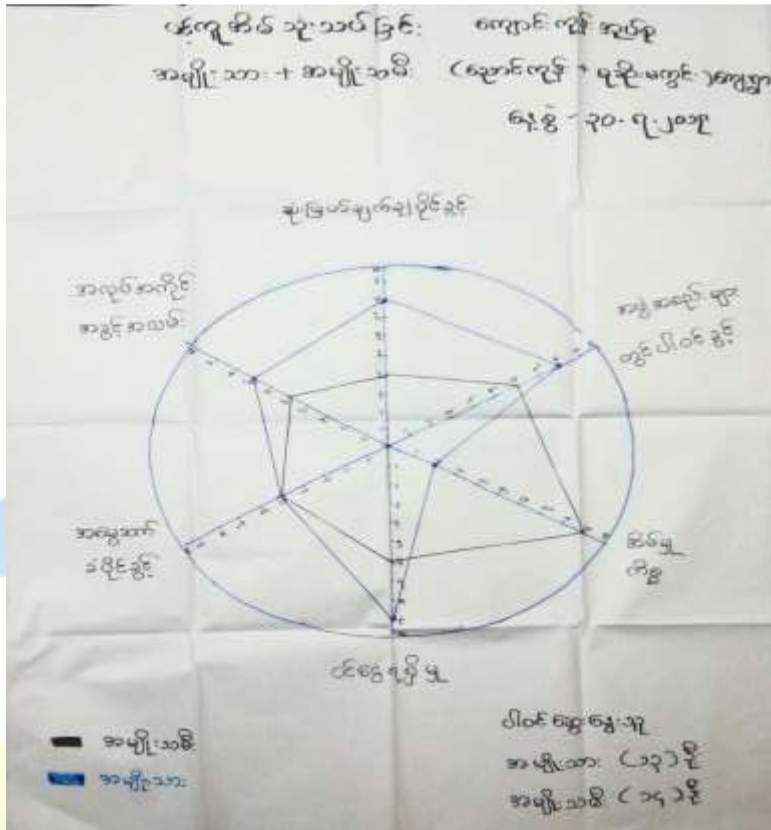 ပင့်ကူအိမ် သုံးသပ်ခြင်း ကျောင်းကုန်းအုပ်စု
အမျိုးသား + အမျိုးသမီး (ညောင်ကုန်း + ကျေးရွာ
နေ့စွဲ - ၃၀.၇.၂၀၁၉
ဆုံးဖြတ်ချက်ချပိုင်ခွင့်
အလုပ်အကိုင်
အခွင့်အလမ်း
အဖွဲ့အစည်းများ
တွင် ပါဝင်ခွင့်
အမွေဆက်
ခံပိုင်ခွင့်
အိမ်မှု
ကိစ္စ
ဝင်ငွေရရှိမှု
အမျိုးသမီး
အမျိုးသား
ပါဝင်ဆွေးနွေးသူ
အမျိုးသား (၁၃) ဦး
အမျိုးသမီး (၁၄) ဦး